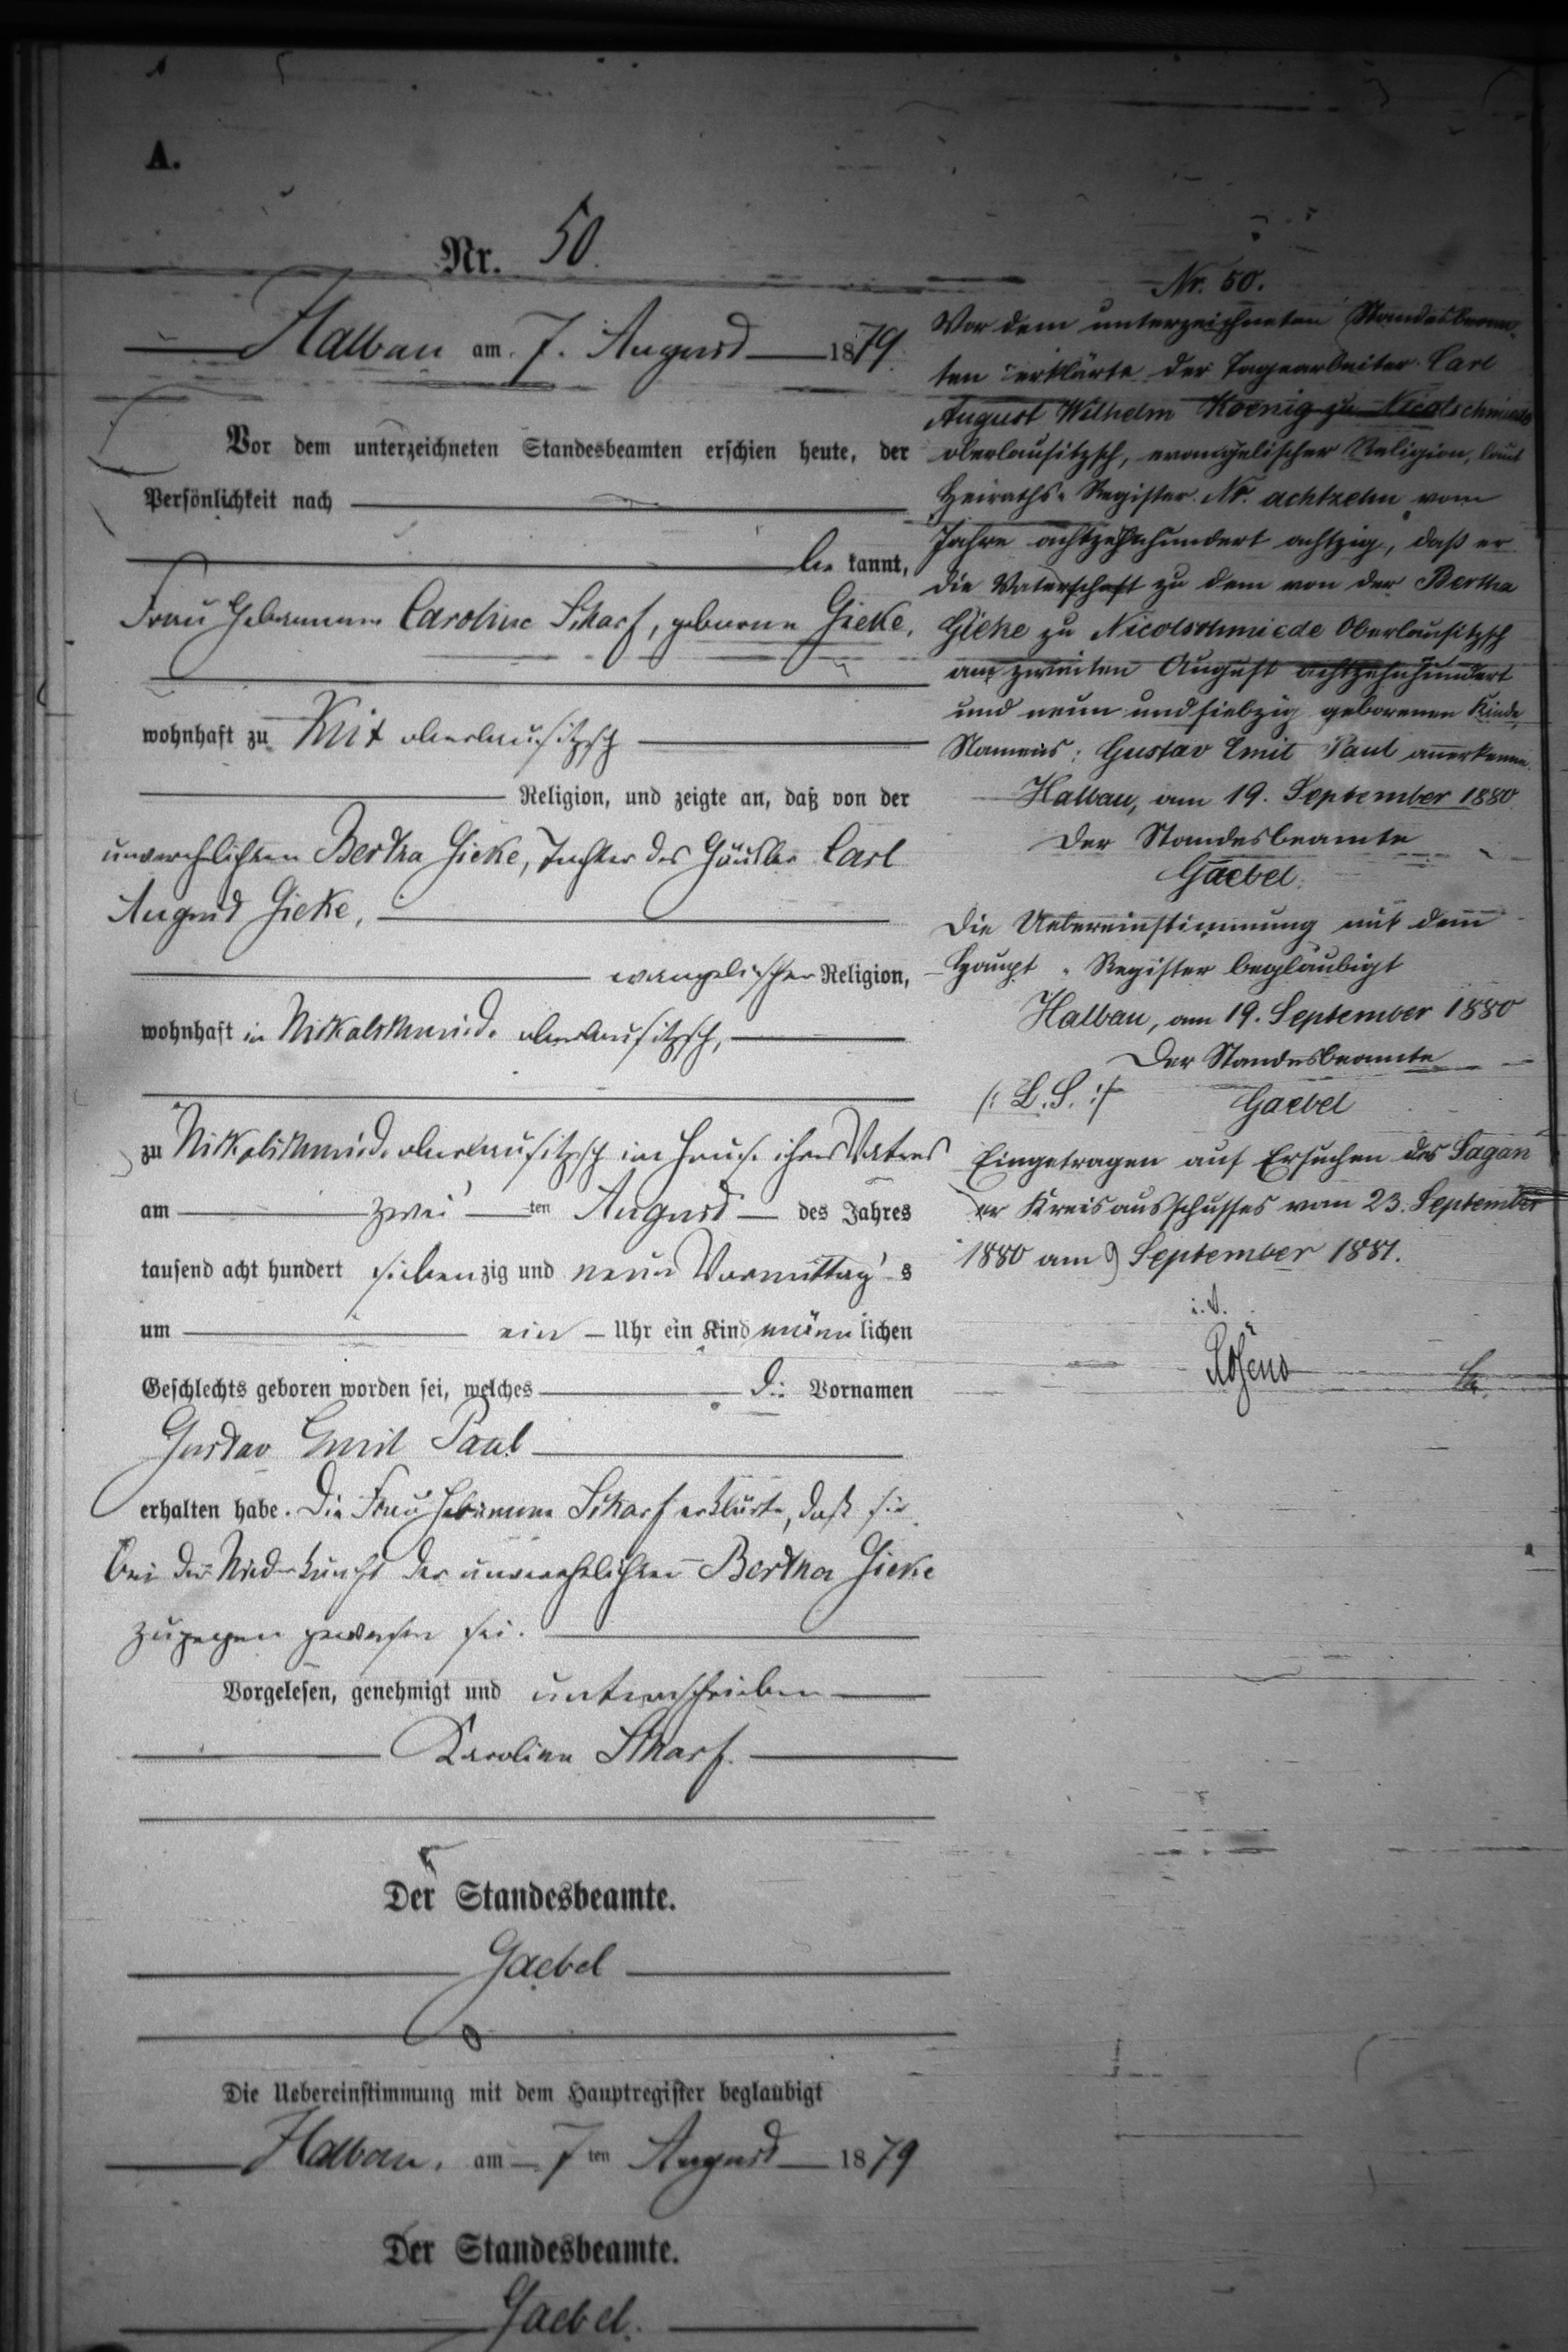 A.
Nr. 50.
Halbau am 7. August 1879.
Vor dem unterzeichneten Standesbeamten erschien heute, der
Persönlichkeit nach
be kannt,
Frau Hebamme Caroline Scharf, geborne Gieke,
wohnhaft zu oberlausitzsch
Religion, und zeigte an, daß von der
unverehelichten Bertha Gieke, Tochter des Häusler Carl
August Gieke,
evangelischer Religion,
wohnhaft in Nikolschmiede oberlausitzsch,
zu Nikolschmiede oberlausitzsch im Hause ihres Vaters
am zwei ten August des Jahres
tausend acht hundert siebenzig und neun Vormittag s
um ein Uhr ein Kind männ lichen
Geschlechts geboren worden sei, welches die Vornamen
Gustav Emil Paul
erhalten habe. Die Frau Hebamme Scharf erklärte, daß sie
bei der Niederkunft der unverehelichten Bertha Gieke
zugegen gewesen sei.
Vorgelesen, genehmigt und unterschrieben
Karoline Scharf.
Der Standesbeamte.
Gaebel
Die Uebereinstimmung mit dem Hauptregister beglaubigt
Halbau, am 7 ten August 1879
Der Standesbeamte.
Gaebel.
Nr. 50.
Vor dem unterzeichneten Standesbeam-
ten erklärte der Tagearbeiter Carl
August Wilhelm Koenig zu Nicolschmiede
oberlausitzsch, evangelischer Religion, laut
Heiraths-Register Nr. achtzehn vom
Jahre achtzehnhundert achtzig, daß er
die Vaterschaft zu dem von der Bertha
Gieke zu Nicolschmiede Oberlausitzsch
am zweiten August achtzehnhundert
und neun und siebzig geborenen Kinde,
Namens: Gustav Emil Paul anerkenne.
Halbau, am 19. September 1880
Der Standesbeamte
Gaebel.
Die Uebereinstimmung mit dem
Haupt-Register beglaubigt
Halbau, am 19. September 1880
Der Standesbeamte
/: L.S. :/ Gaebel
Eingetragen auf Ersuchen des Sagan
er Kreisausschusses vom 23. September
1880 am 9 September 1881.
i. V.